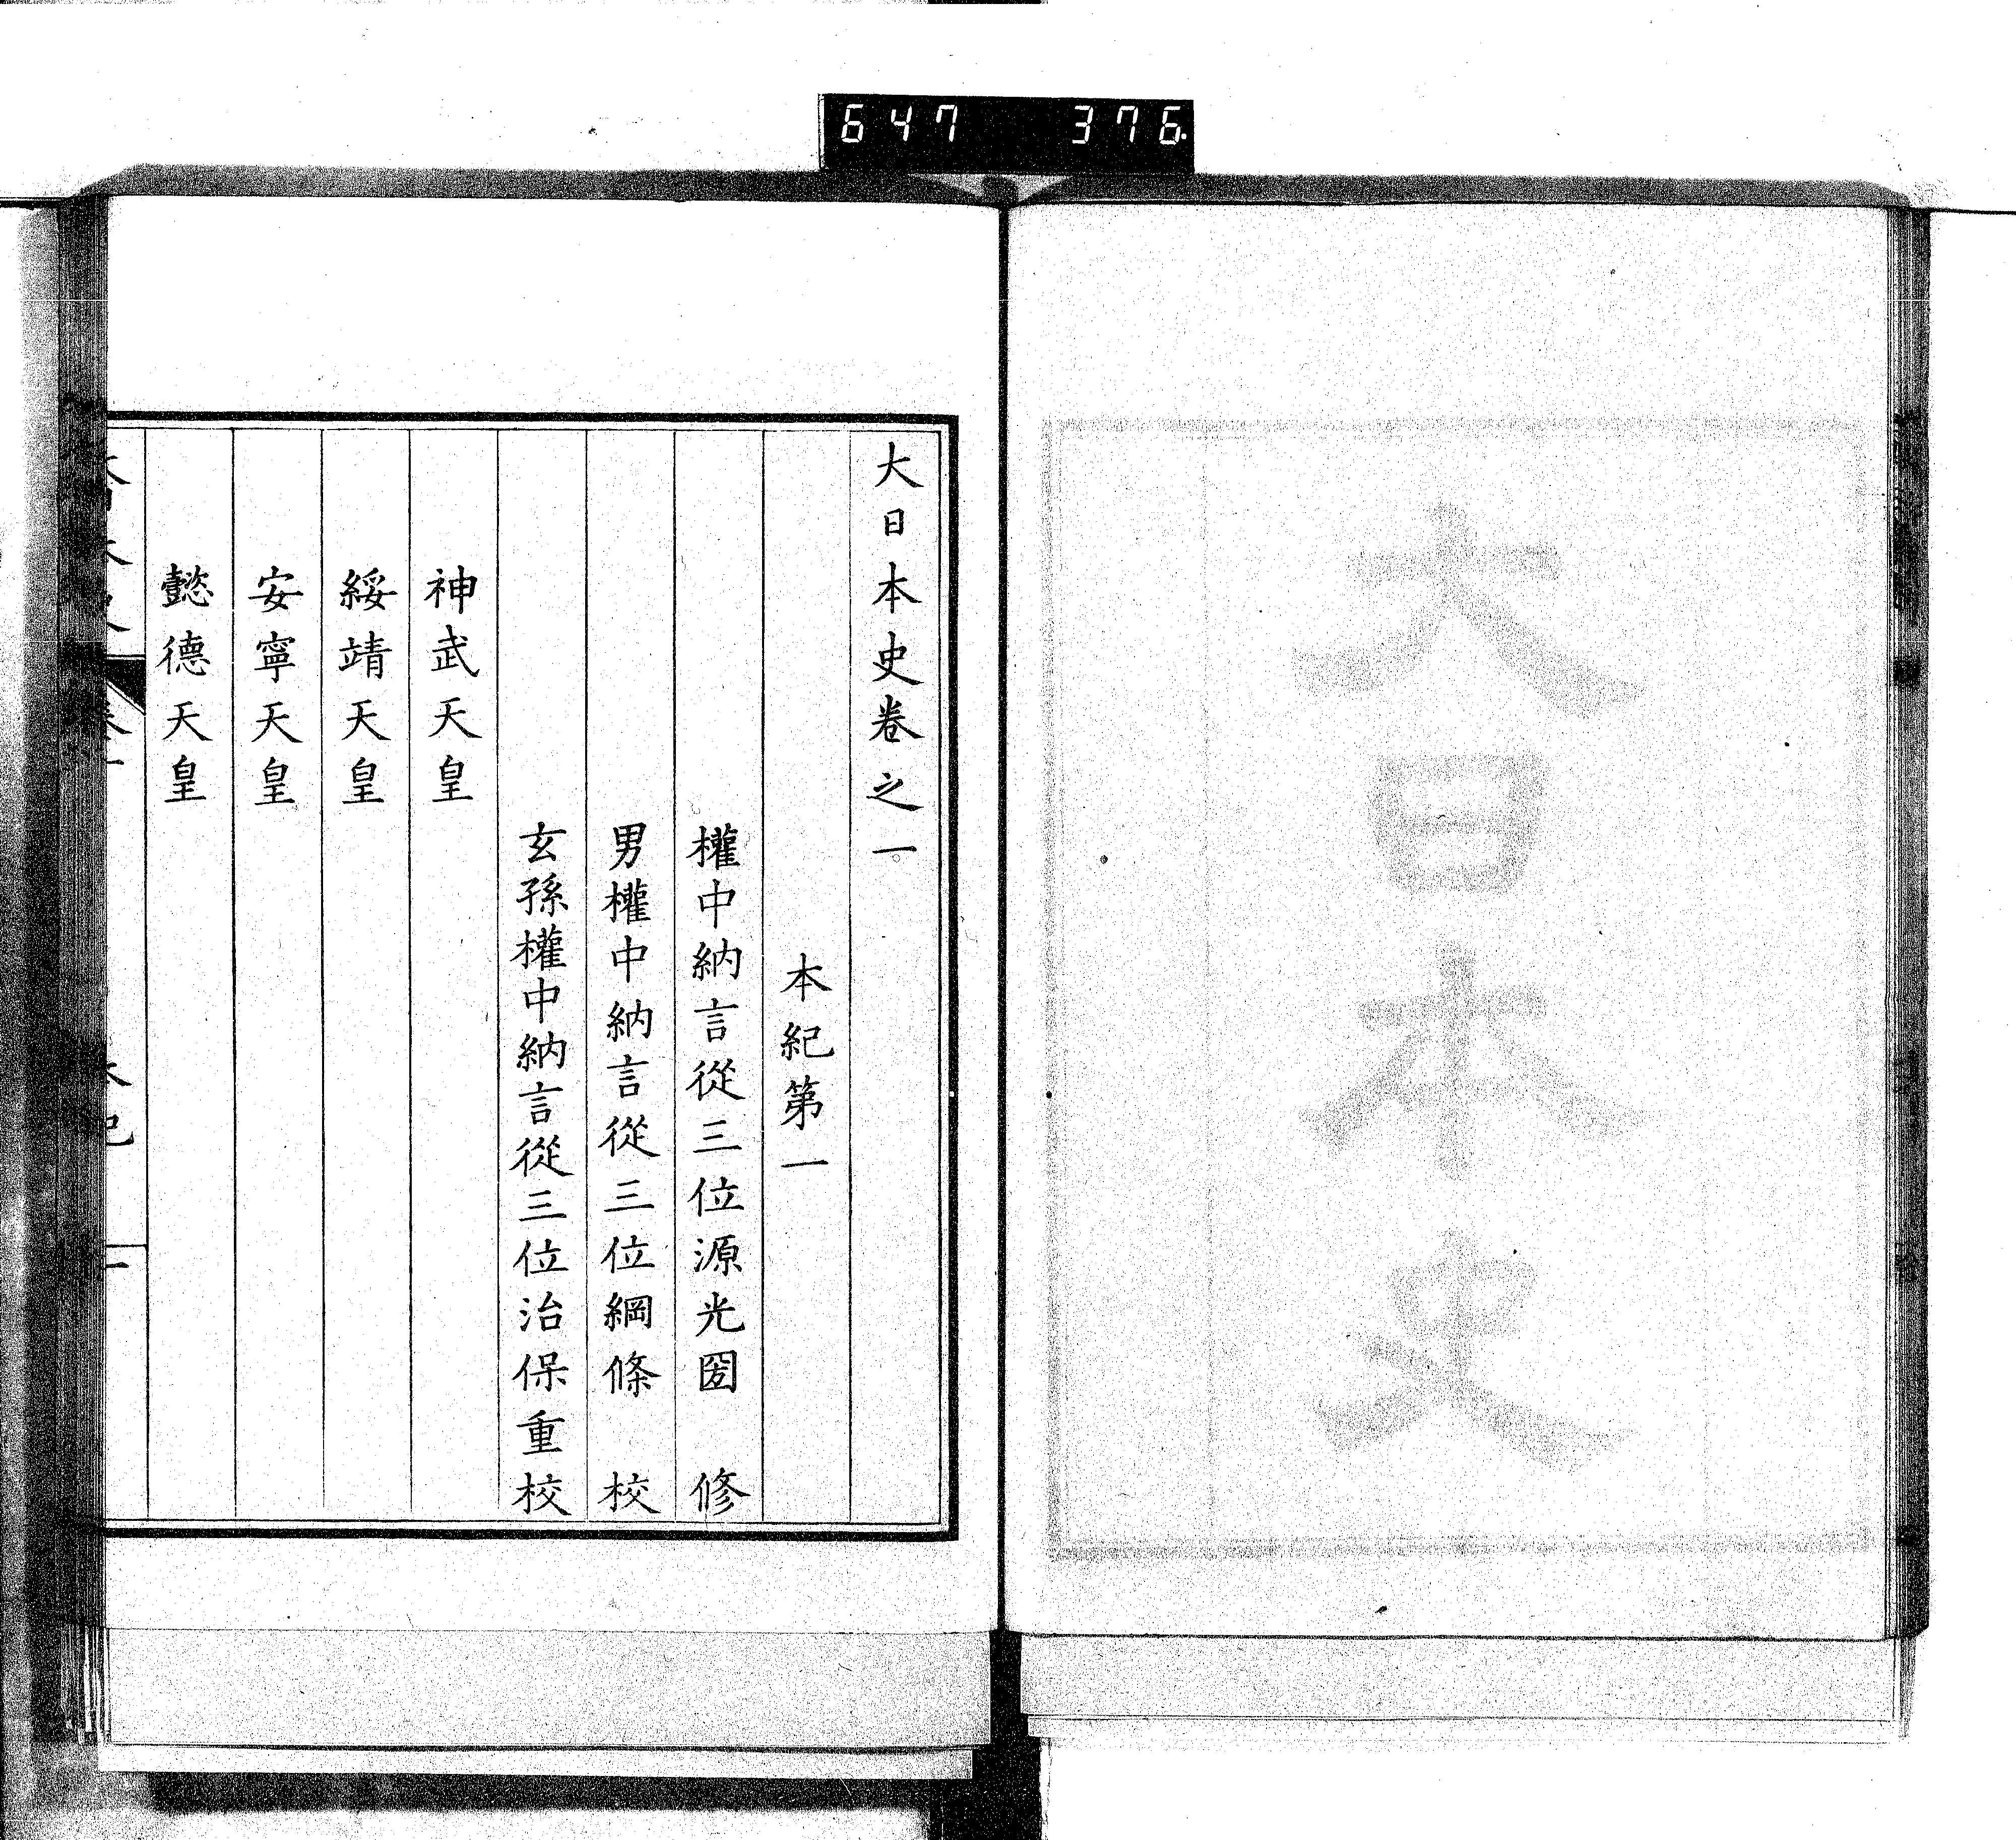 647 376
大日本史
大日本史卷之一
本紀第一
權中納言從三位源光圀 修
男權中納言從三位綱條 校
玄孫權中納言從三位治保重校
神武天皇
綏靖天皇
安寧天皇
懿德天皇